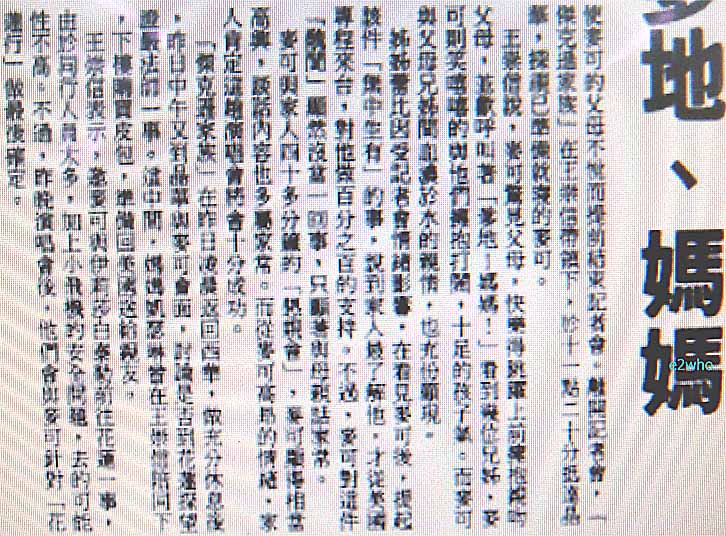 爹地、媽媽
使麥可的父母不悅而提前結束記者會。離開記者會,「
傑克遜家族」在王崇信帶領下,於十一點二十分抵達晶
華,採訪已準備就寢的麥可。
王崇信說,麥可驚見父母,快樂得跳躍上前擁抱親吻
父母,並歡呼叫著「爹地!媽媽!」看到幾位兄姊,麥
可則笑嘻嘻的與他們擁抱打鬧,十足的孩子氣。而麥可
與父母兄姊間血濃於水的親情,也充份顯現。
姊姊蕾比因受記者會情緒影響,在看見麥可後,提起
該件「無中生有」的事,說到家人最了解他,才從美國
專程來台,對他做百分之百的支持。不過,麥可對這件
「醜聞」顯然沒當一回事,只顧著與母親話家常。
麥可與家人四十多分鐘的「懇親會」,麥可顯得相當
高興,談話內容也多屬家常。而從麥可高昂的情緒,家
人肯定這場演唱會將會十分成功。
「傑克遜家族」在昨日凌晨返回西華,做充分休息後
,昨日中午又到晶華與麥可會面,討論是否到花蓮探望
證嚴法師一事。這中間,媽媽凱瑟琳曾在王崇信陪同下
,下樓購買皮包,準備回美國送給親友。
王崇信表示,邀麥可與伊莉莎白泰勒前往花蓮一事,
由於同行人員太多,加上小飛機的安全問題,去的可能
性不高。不過,昨晚演唱會後,他們會與麥可針對「花
蓮行」做最後確定。
e2who